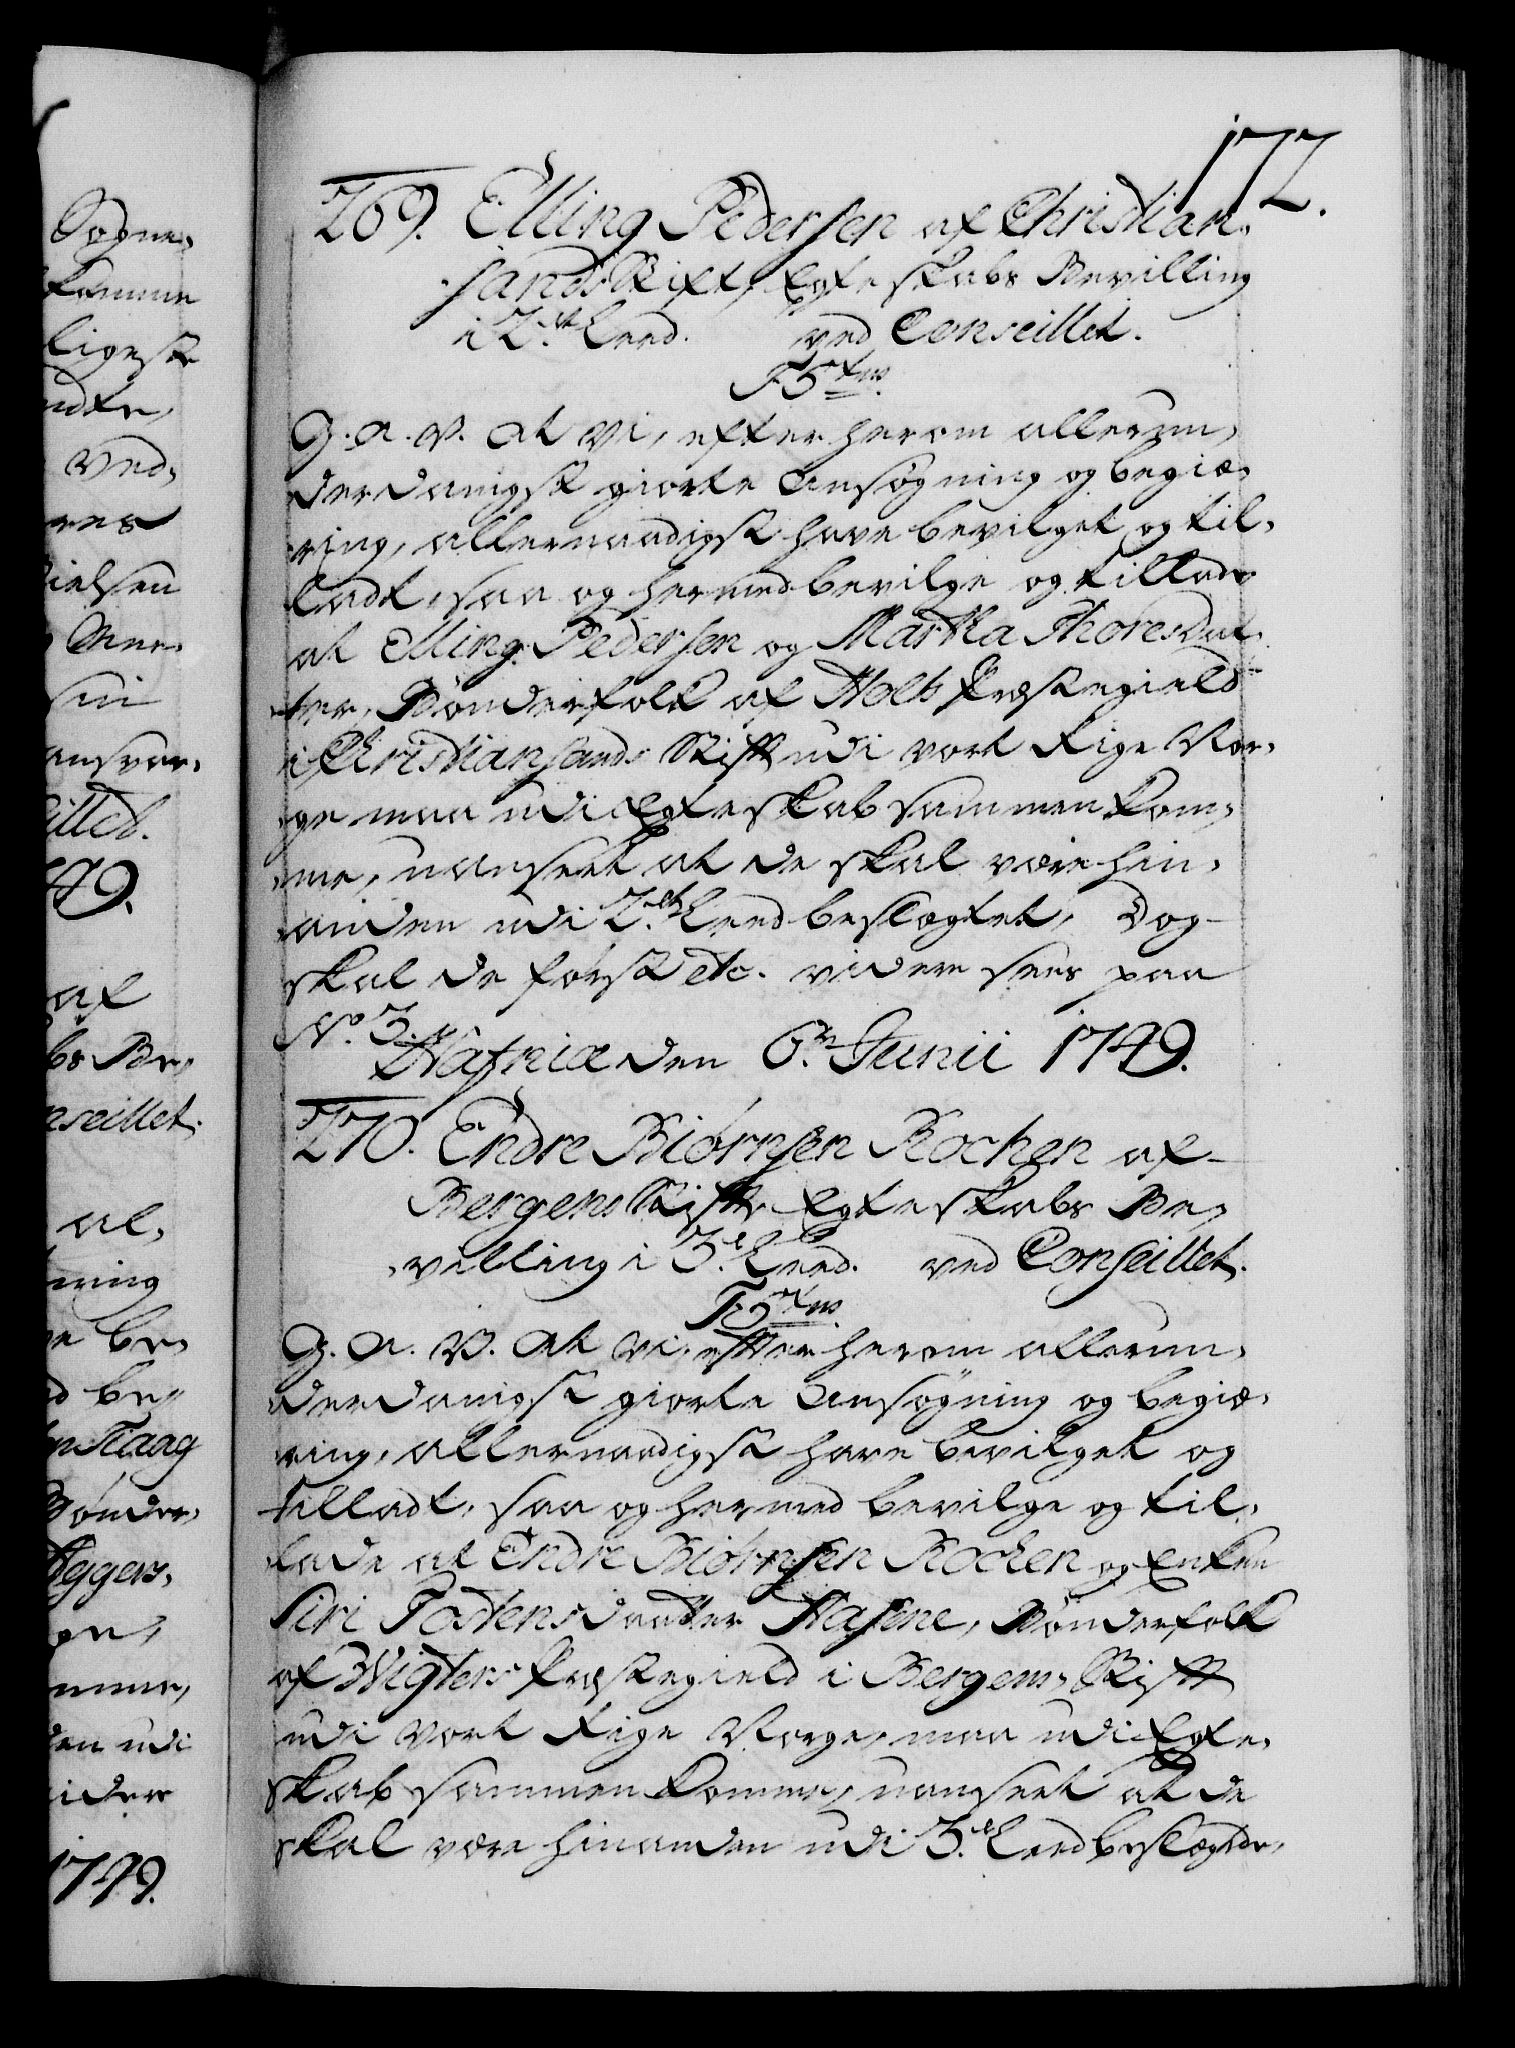 172.
269. Elling Pedersen af Christian-
sands Stift, Egteskabs Bevilling
i 2.det Leed. ved Conseillet.
F5tus
G. A. V. At vi, efter herom allerun-
derdanigst giorte Ansøgning og begiæ-
ring, allernaadigst have bevilget og til-
ladt, saa og hermed bevilge og tillade
at Elling Pedersen og Martha Thoresdat-
ter, Bønderfolk af Holts Præstegield
i Christiansands Stift udi vort Rige Nor-
ge maa udi Egteskab sammen kom-
me, uanseet at de skal være hin-
anden udi 2.det Leed beslægtet, Dog
skal de først etc. videre sees paa
No. 3.
Hafniæ den 6.te Junii 1749.
270. Endre Biørnsen Rochen af
Bergens Stift Egteskabs Be-
villing i 3.e Leed. ved Conseillet.
F5tus
G. A. V. At vi, efter herom allerun-
derdanigst giorte Ansøgning og begiæ-
ring, allernaadigst have bevilget og
tilladt, saa og hermed bevilge og til-
lade at Endre Biørnsen Rochen og Enken
Siri Tostensdaatter Hasene, Bønderfolk
af Wigters Præstegield i Bergens Stift
udi vort Rige Norge, maa udi Egte-
skab sammen komme, uanseet at de
skal være hinanden udi 3.e Leed beslægtede,
Sogne-
komme
ligeste
ved-
Nielsen
sin
ansvar-
af
Be-
Conseillet.
al-
ning
be-
be-
Bønder-
Aggers-
udi
1749.